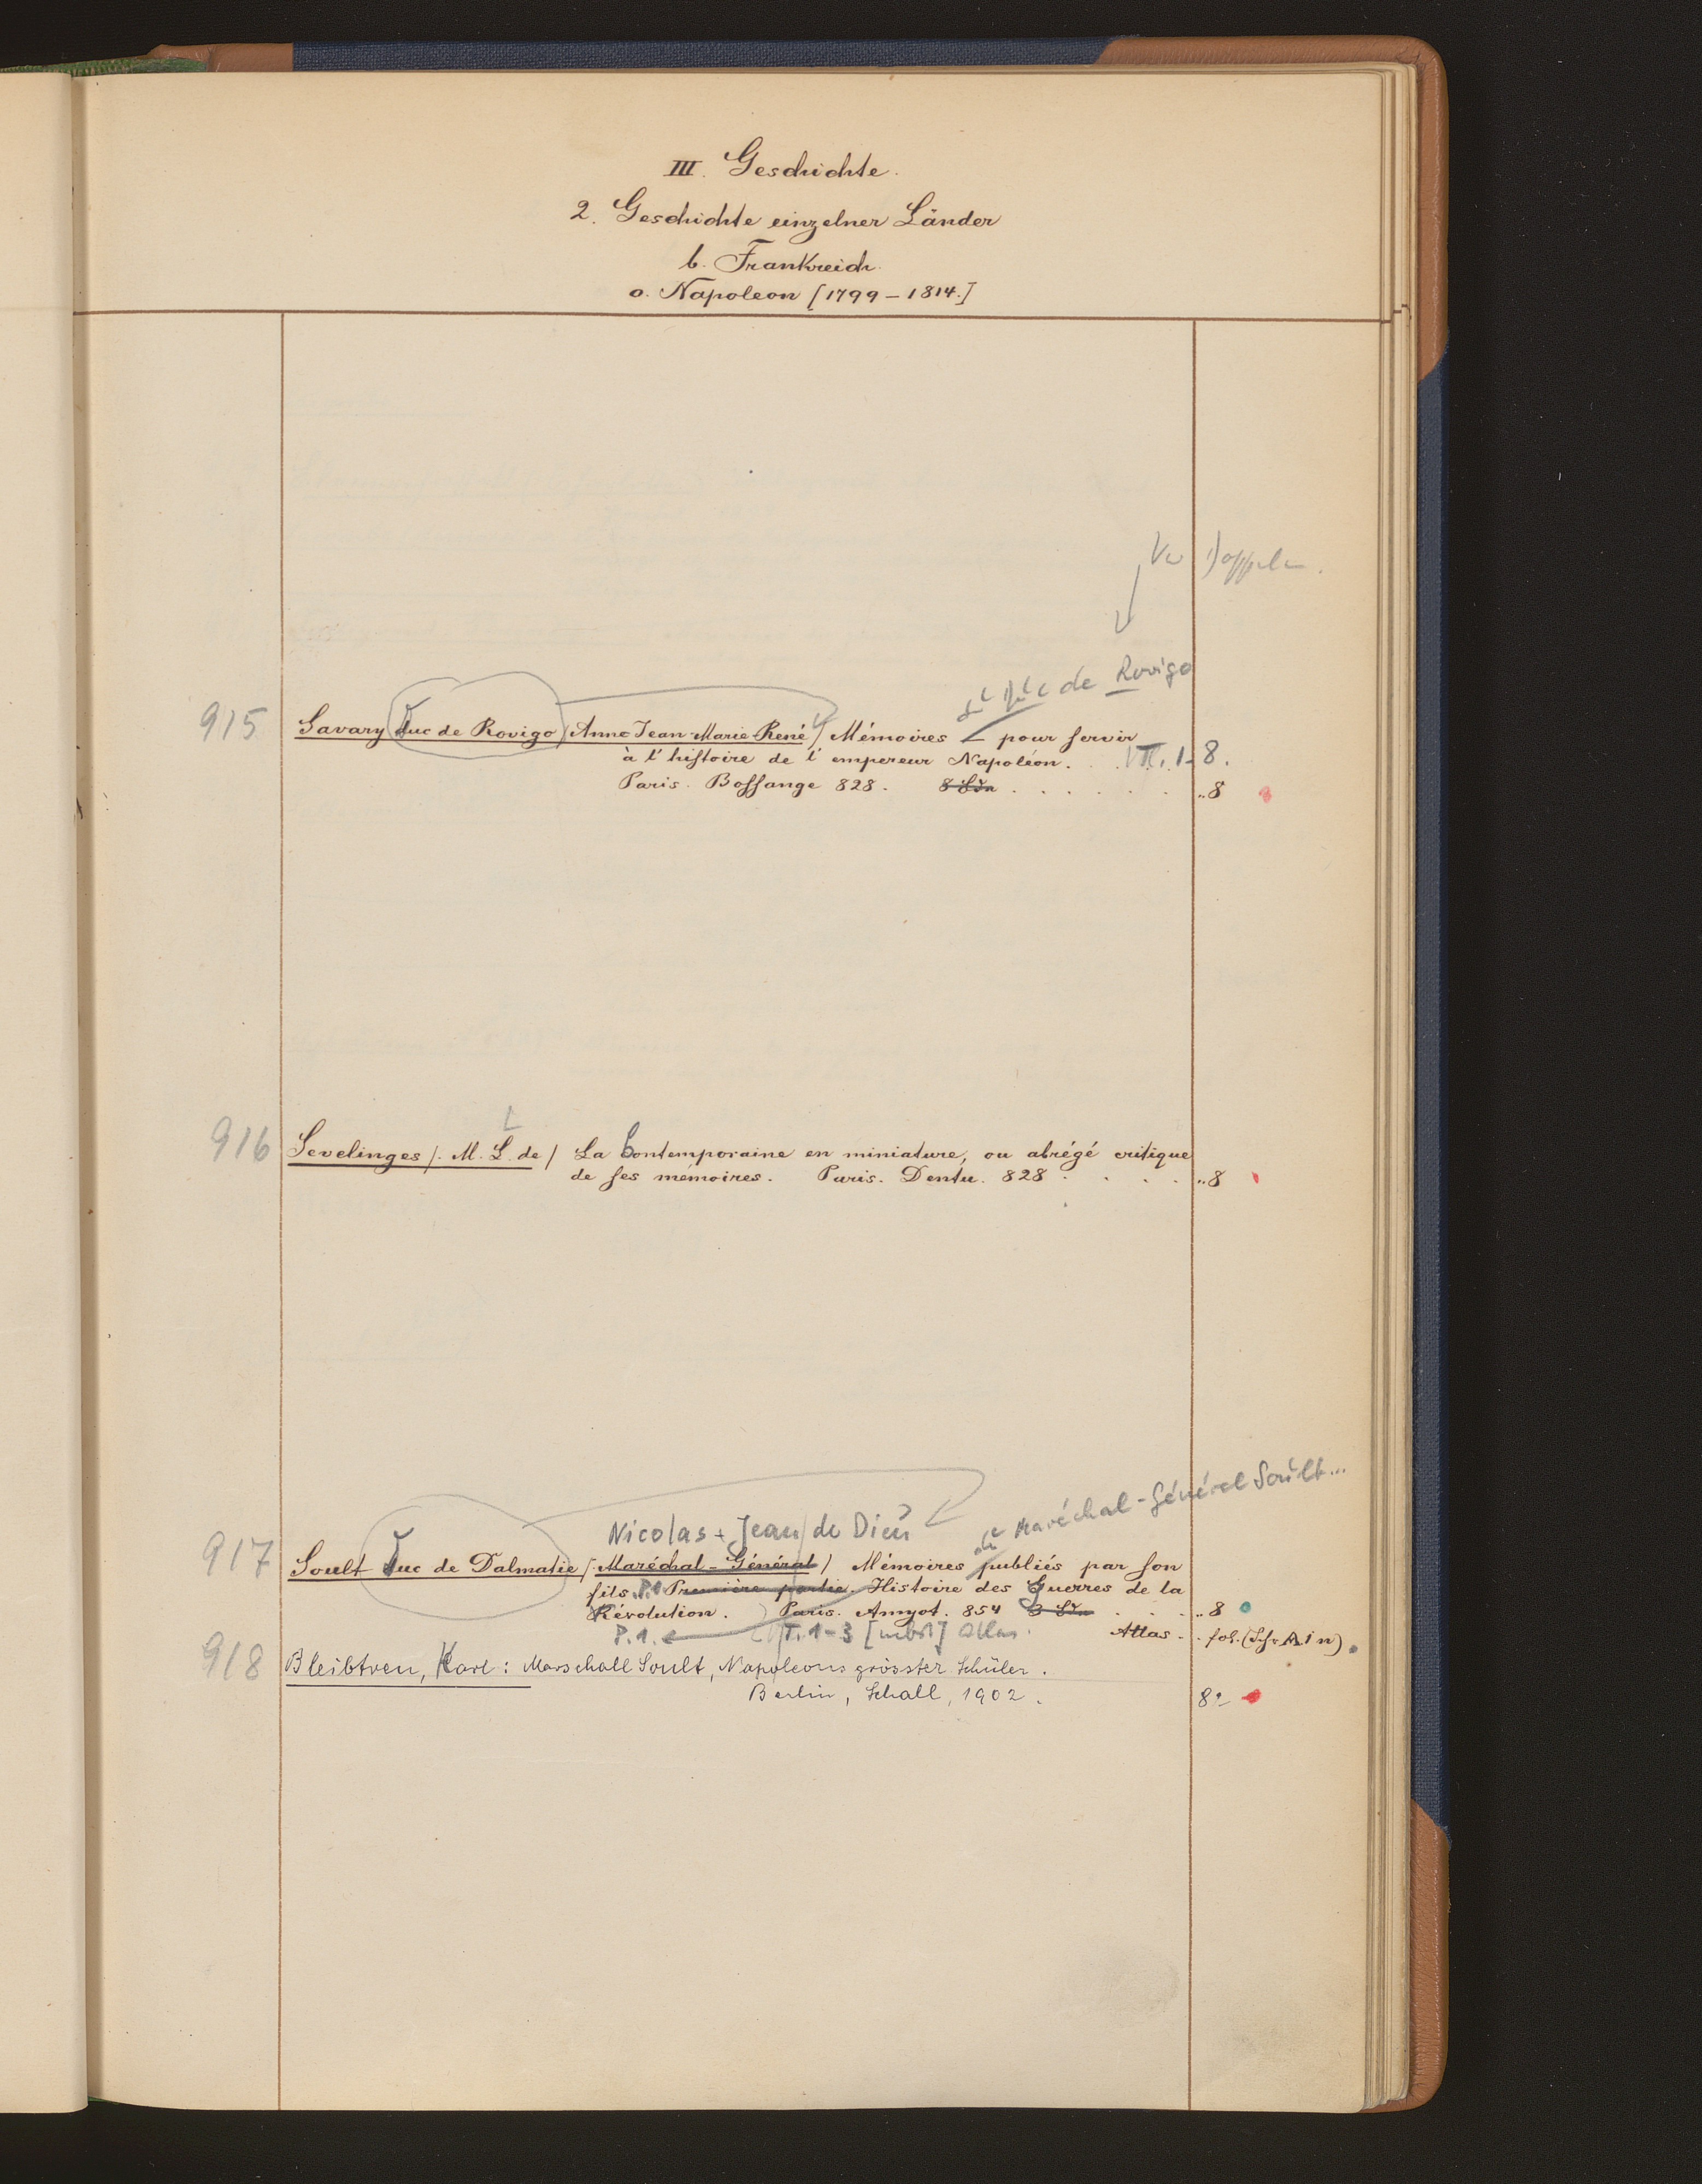 III. Geschichte.
2. Geschichte einzelner Länder
b. Frankreich.
o. Napoleon [1799 – 1814.]
du Duc de Rovigo
915 Savary Duc de Rovigo / Anne Jean Marie René / Mémoires pour servir
à l'histoire de l'empereur Napoléon. . T. 1-8.
Paris. Bossange 828. 8 Bdn . . . . . . ..8
916 Sevelinges /. M. L. de / La Contemporaine en miniature, ou abrégé critique
de ses mémoires. Paris. Dentu. 828 . . . . ..8
du Maréchal-Général Soult...
Nicolas + Jean de Dieu
917 Soult Duc de Dalmatie / Maréchal-Général / Mémoires publiés par son
fils. P. 1 Première partie. Histoire des Guerres de la
Révolution. Paris. Amyot. 854 3 Bdn . . . ..8
P. 1. T. 1-3 [nebst] Atlas. Atlas. . fol. (Schr. A i n)
918 Bleibtreu, Karl: Marschall Soult, Napoleons grösster Schüler.
Berlin, Schall, 1902. 8°